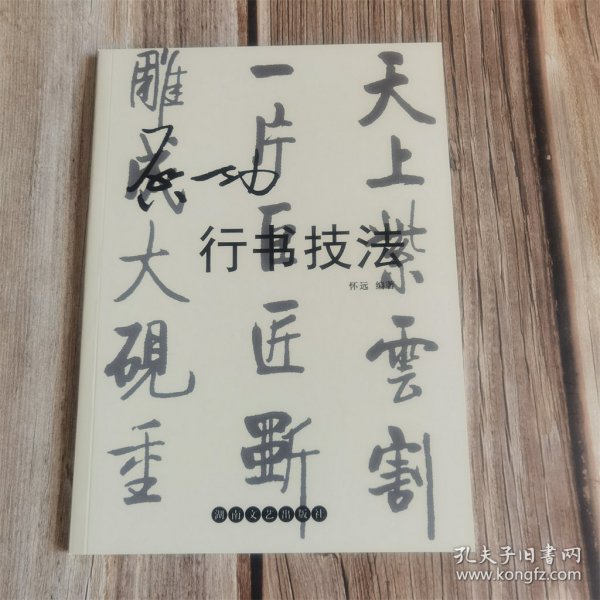 天上紫雲割
一片巨匠斲
雕成大硯重
启功
行书技法
怀远 编著
湖南文艺出版社
孔夫子旧书网
www.kongfz.com